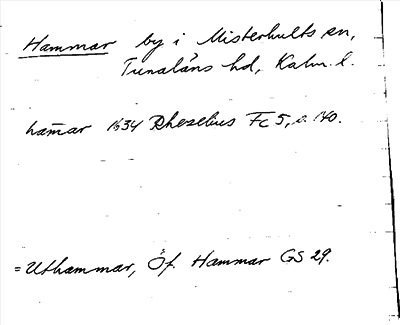 Hammar by i Misterhults sn,
Tunaläns hd, Kalm. l.
ham̄ar 1634 Rhezelius Fc 5, s. 140.
= Uthammar, Öf. Hammar GS 29.